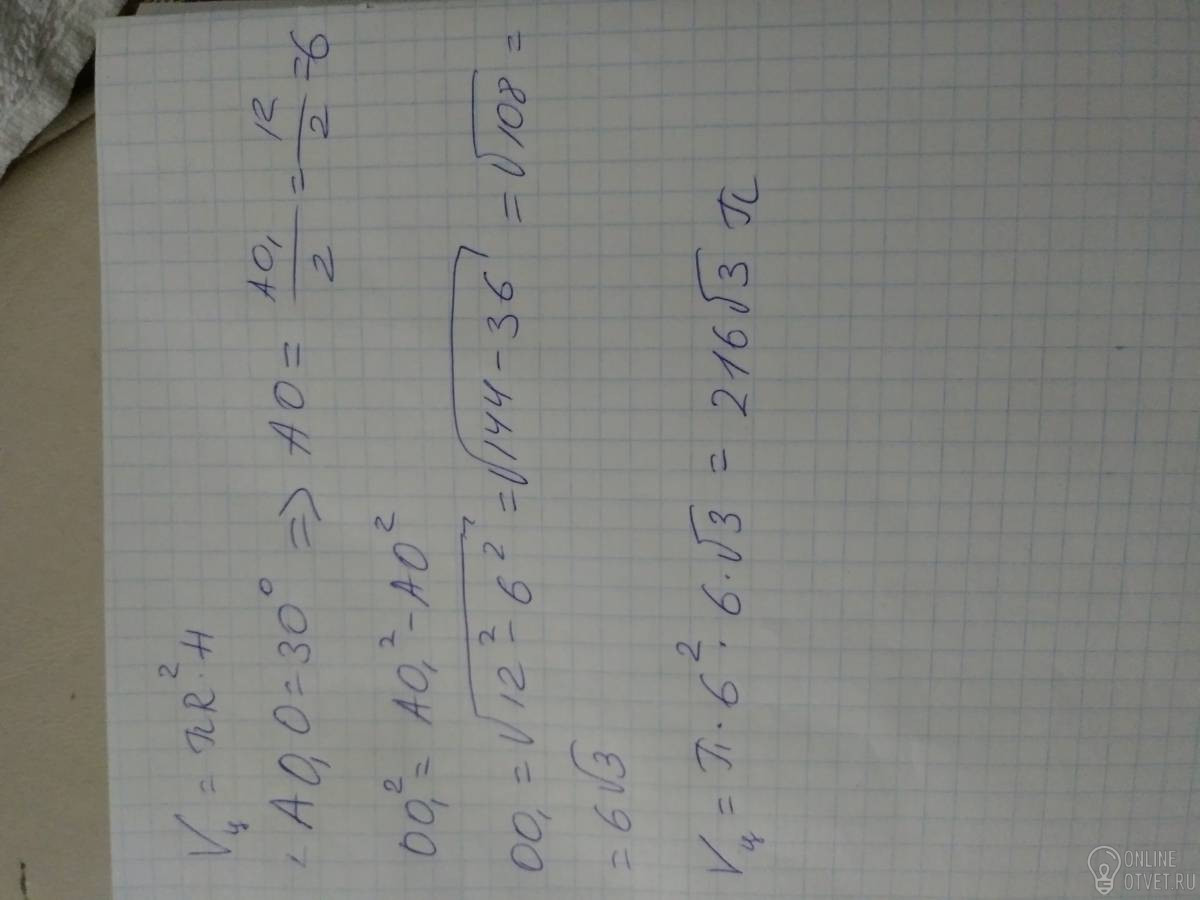 Vц = πR² · H
∠AO₁O = 30° => AO = AO₁/2 = 12/2 = 6
OO₁² = AO₁² - AO²
OO₁ = √(12² - 6²) = √(144 - 36) = √108 =
= 6√3
Vц = π · 6² · 6 · √3 = 216√3 π
ONLINE
OTVET.RU